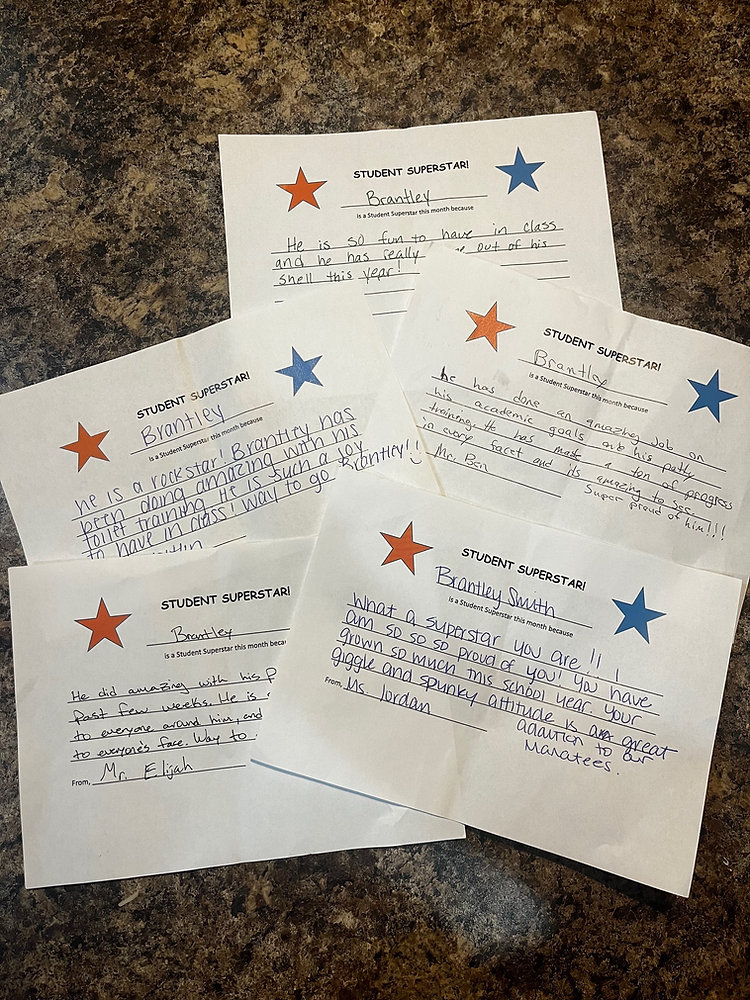 STUDENT SUPERSTAR!
Brantley
is a Student Superstar this month because
He is so fun to have in class
and he has really out of his
shell this year!
STUDENT SUPERSTAR!
Brantley
is a Student Superstar this month because
he has done an amazing job on
his academic goals and his potty
training. He has made a ton of progress
in every facet and its amazing to see.
Super proud of him!!!
Mr. Ben
STUDENT SUPERSTAR!
Brantley
is a Student Superstar this month because
he is a rockstar! Brantley has
been doing amazing with his
toilet training. He is such a joy
to have in class! Way to go Brantley!!
STUDENT SUPERSTAR!
Brantley
is a Student Superstar this month
He did amazing with his
past few weeks. He is
to everyone around him, and
to everyone's face. Way to
From, Mr. Elijah
STUDENT SUPERSTAR!
Brantley Smith
is a Student Superstar this month because
What a superstar you are!! I
am so so so proud of you! You have
grown so much this school year. Your
giggle and spunky attitude is a great
addition to our
Manatees.
From, Ms. Jordan